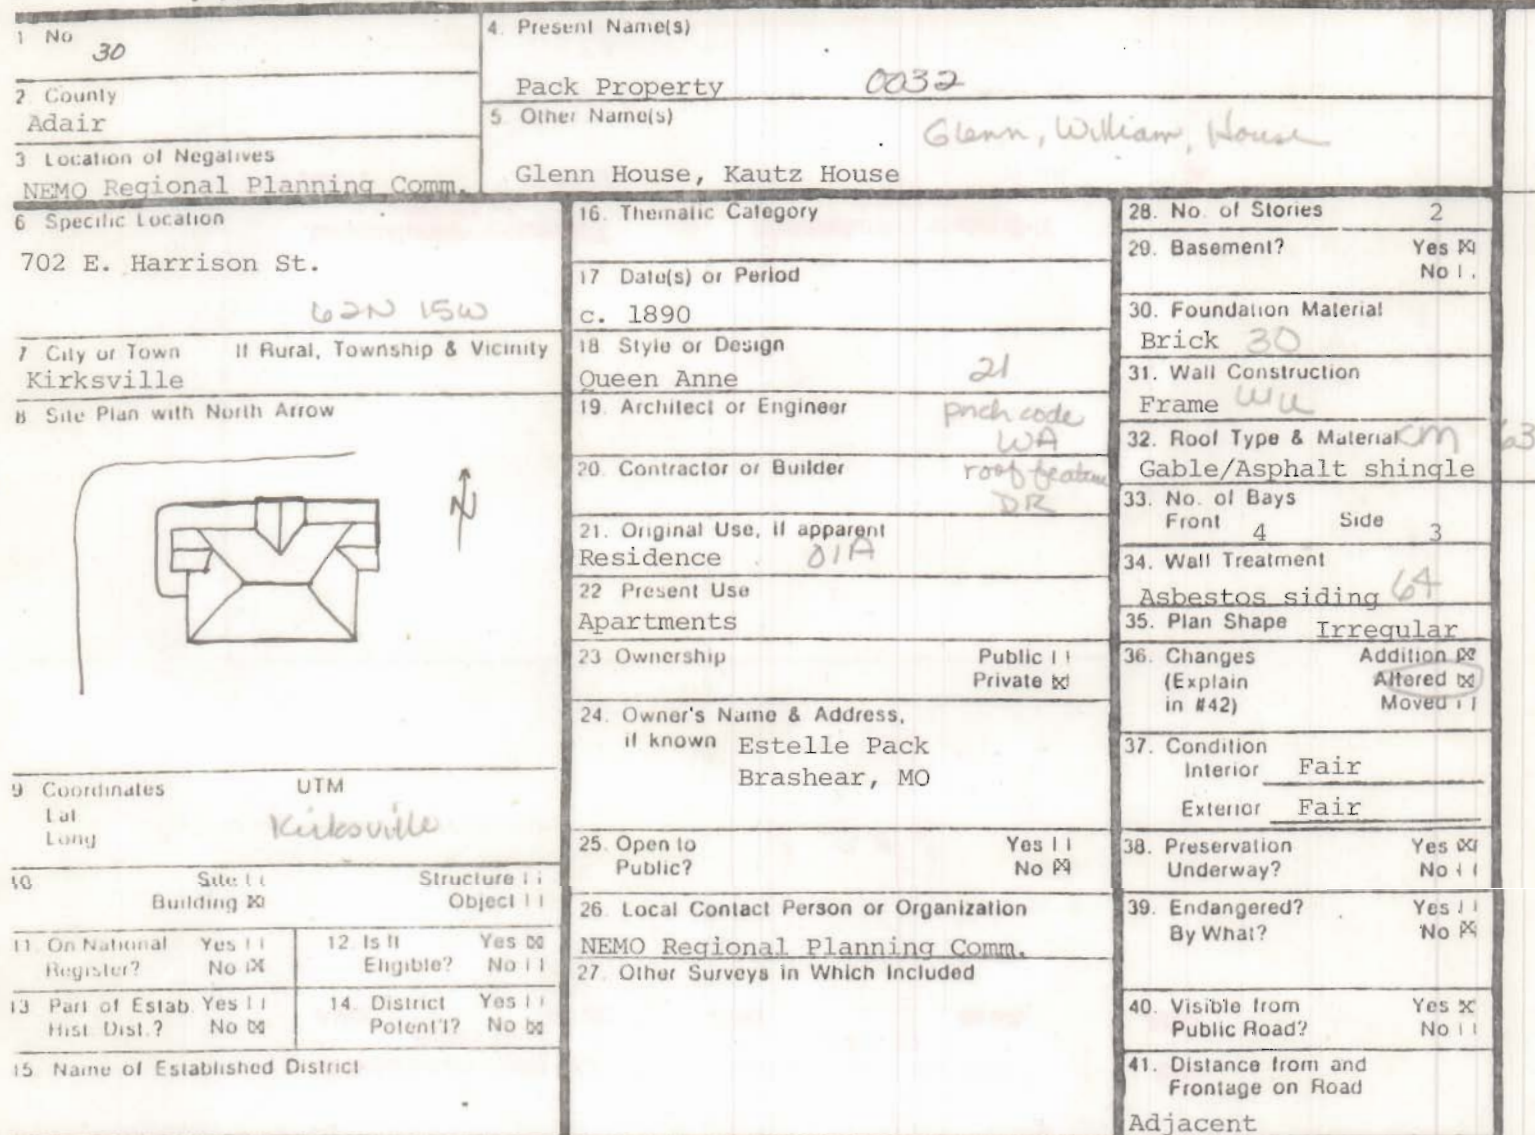 1 No
30
2 County
Adair
3 Location of Negatives
NEMO Regional Planning Comm.
4. Present Name(s)
Pack Property 0032
5 Other Name(s)
Glenn, William, House
Glenn House, Kautz House
6 Specific Location
702 E. Harrison St.
62N 15W
7 City or Town If Rural, Township & Vicinity
Kirksville
8 Site Plan with North Arrow
N
9 Coordinates UTM
Lat
Long
Kirksville
10 Site Structure
Building ☒ Object
11. On National Register? Yes No ☒
12. Is It Eligible? Yes ☒ No
13 Part of Estab. Hist. Dist.? Yes No ☒
14. District Potent'l? Yes No ☒
15 Name of Established District
16. Thematic Category
17 Date(s) or Period
c. 1890
18 Style or Design
Queen Anne 21
19. Architect or Engineer
prch code
WA
20. Contractor or Builder
roof feature
DR
21. Original Use, if apparent
Residence 01A
22 Present Use
Apartments
23 Ownership Public
Private ☒
24. Owner's Name & Address,
if known Estelle Pack
Brashear, MO
25. Open to Yes
Public? No ☒
26. Local Contact Person or Organization
NEMO Regional Planning Comm.
27. Other Surveys in Which Included
28. No. of Stories 2
29. Basement? Yes ☒
No
30. Foundation Material
Brick 30
31. Wall Construction
Frame
32. Roof Type & Material 63
Gable/Asphalt shingle
33. No. of Bays
Front 4 Side 3
34. Wall Treatment
Asbestos siding 64
35. Plan Shape Irregular
36. Changes Addition ☒
(Explain Altered ☒
in #42) Moved
37. Condition
Interior Fair
Exterior Fair
38. Preservation Yes ☒
Underway? No
39. Endangered? Yes
By What? No ☒
40. Visible from Yes ☒
Public Road? No
41. Distance from and
Frontage on Road
Adjacent